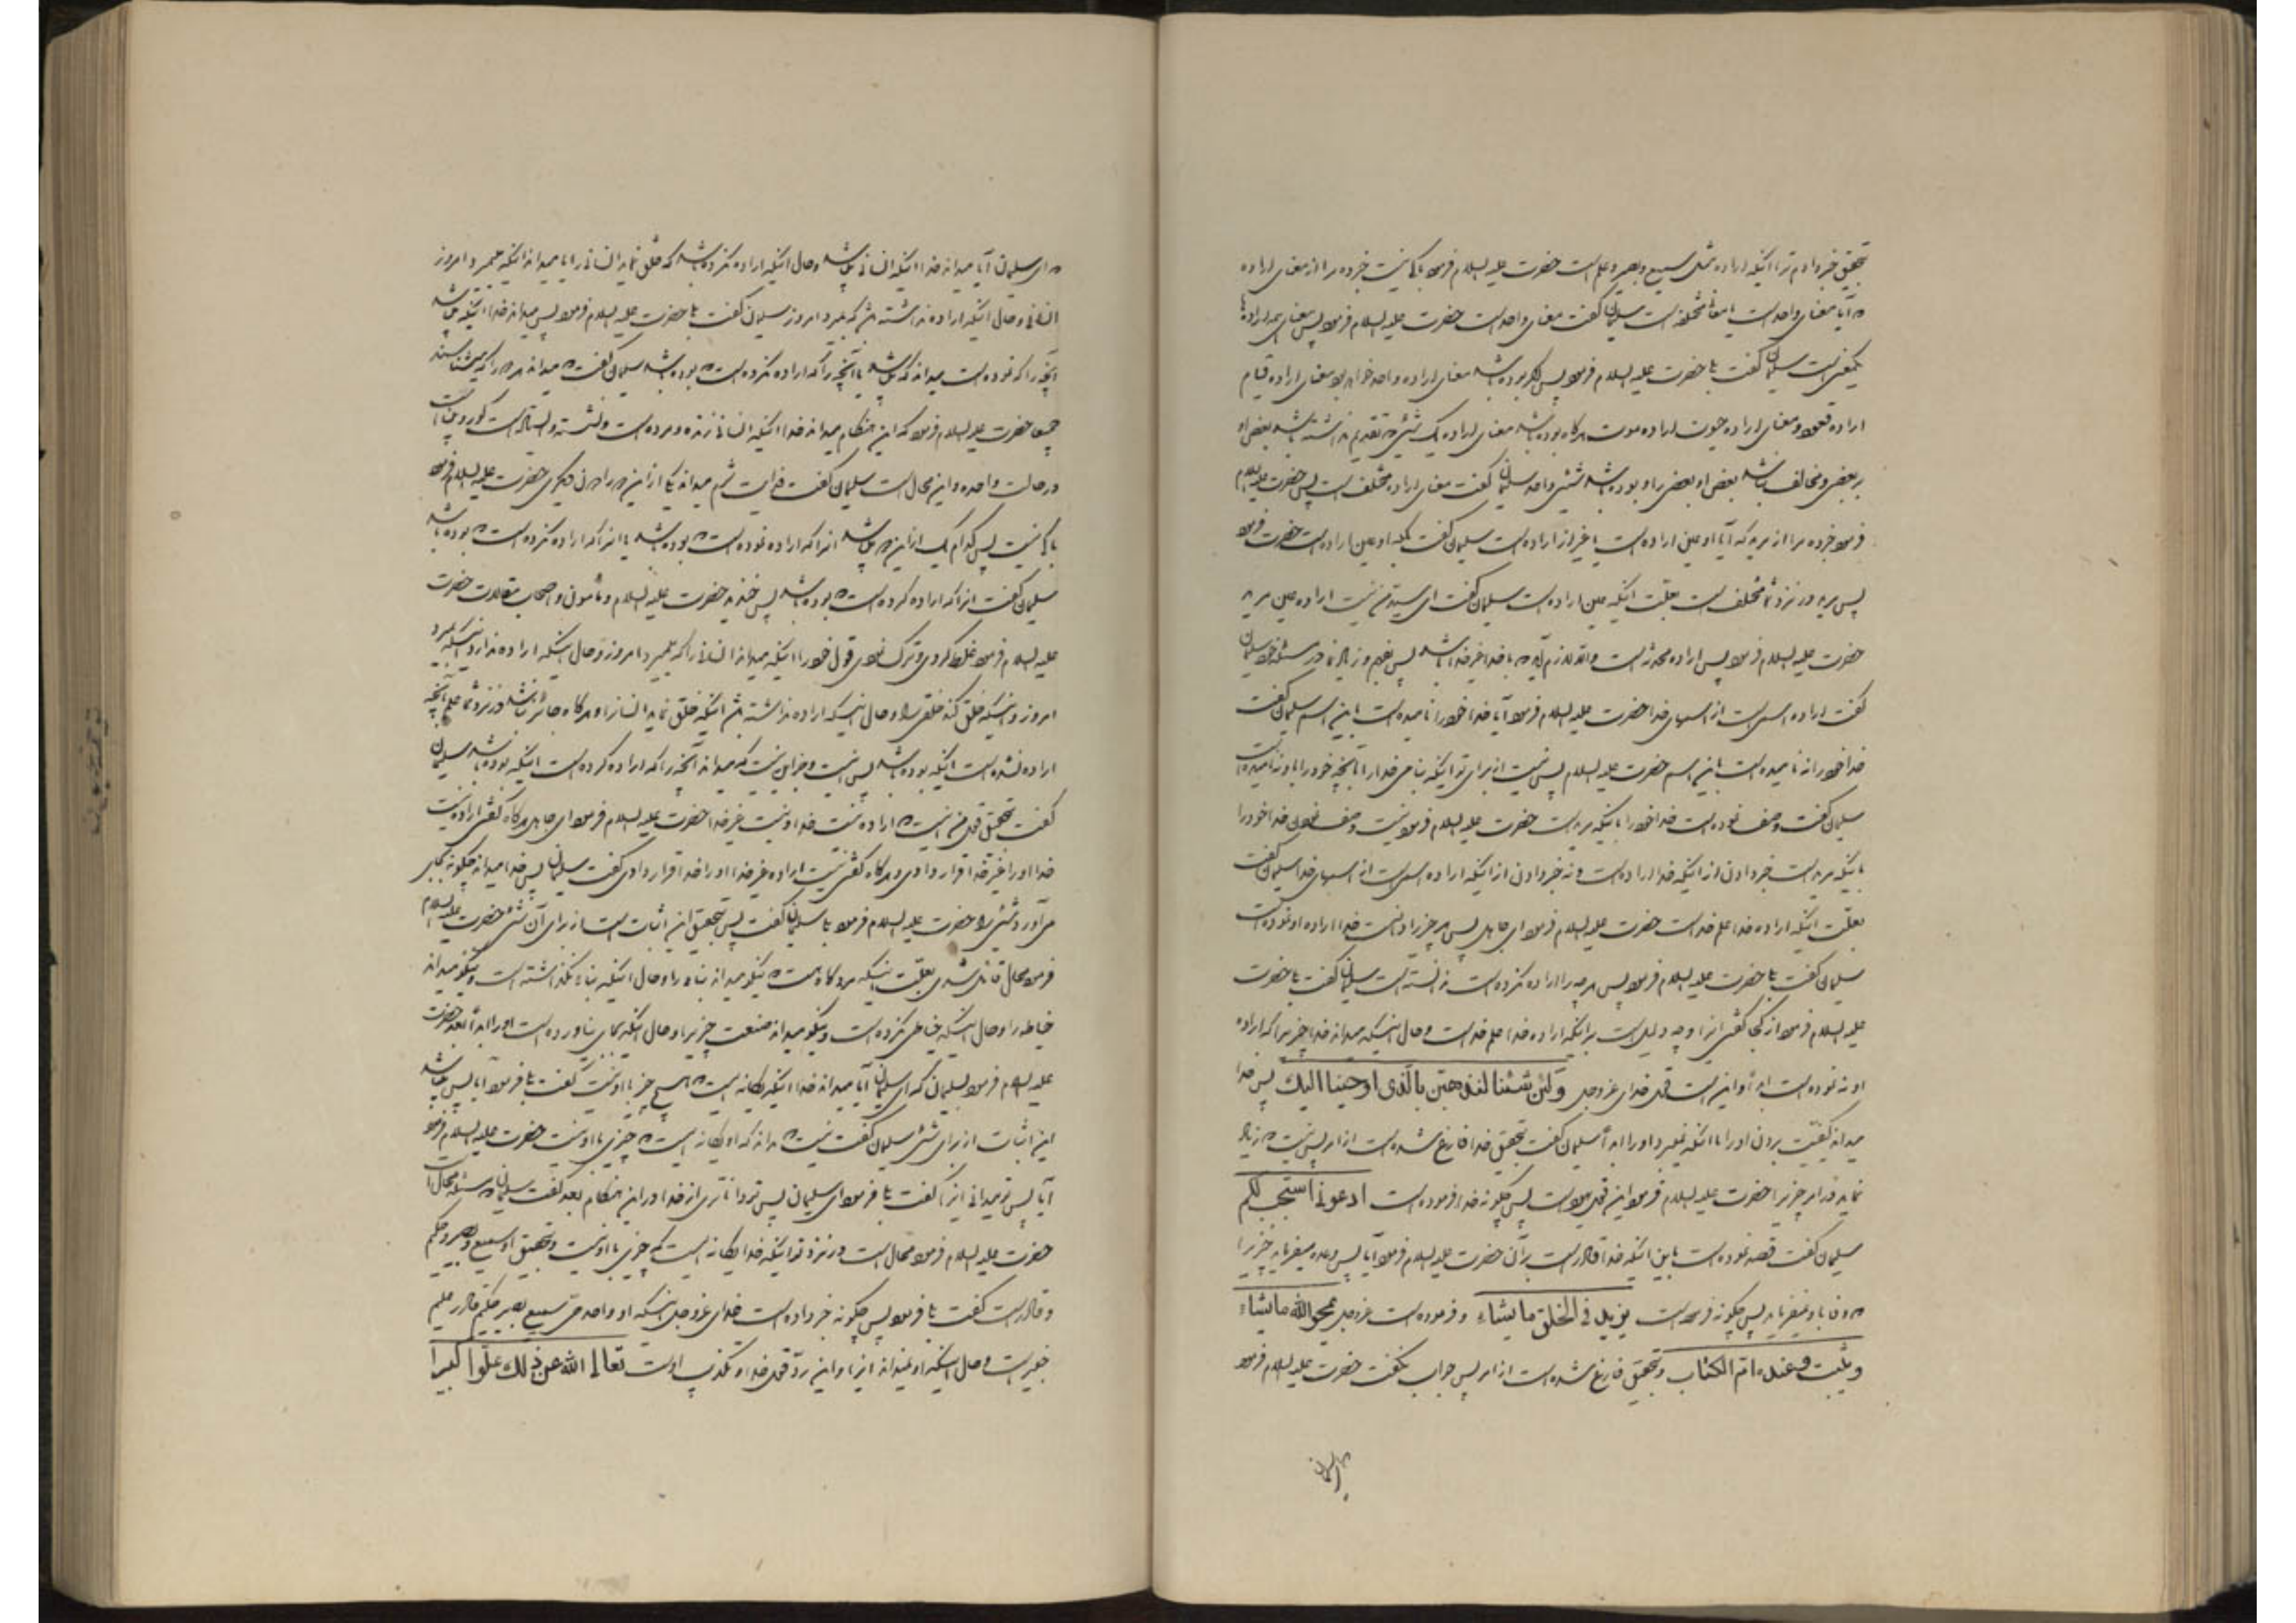 بتحقیق خبر دادم ترا اینکه اراده مثل سمیع و بصیر و علم است حضرت علیه السلام فرمود باکی نیست خبر ده مرا از معنای اراده
که آیا معنای واحد است یا معانی مختلفه است سلیمان گفت معنای واحد است حضرت علیه السلام فرمود پس معنای همه ارادها
یکمعنی است سلیمان گفت بلی حضرت علیه السلام فرمود پس اگر بوده باشد معنای اراده واحد خواهد بود معنای اراده قیام
اراده قعود و معنای اراده حیوت اراده موت هرگاه بوده باشد معنای اراده یک شیئی که تقدیم نداشته باشد بعض او
بر بعض و مخالف نباشد بعض او بعض را و بوده باشد شیئی واحد سلیمان گفت معنای اراده مختلف است پس حضرت علیه السلام
فرمود خبر ده مرا از مرید که آیا او عین اراده است یا غیر از اراده است سلیمان گفت بلکه او عین اراده است حضرت فرمود
پس مرید در نزد شما مختلف است بعلت اینکه عین اراده است سلیمان گفت ای سید من نیست اراده عین مرید
حضرت علیه السلام فرمود پس اراده محدث است والا لازم آید که با خدا غیر خدا باشد پس بفهم و زیاد نما در مسئله خود سلیمان
گفت اراده اسمی است از اسمهای خدا حضرت علیه السلام فرمود آیا خدا خود را نامیده است باین اسم سلیمان گفت
خدا خود را نه نامیده است باین اسم حضرت علیه السلام پس نیست از برای تو اینکه بنامی خدا را بآنچه خود را باو نه نامیده است
سلیمان گفت وصف نموده است خدا خود را باینکه مرید است حضرت علیه السلام فرمود نیست وصف نمودن خدا خود را
باینکه مرید است خبر دادن از اینکه خدا اراده است و نه خبر دادن از اینکه اراده اسمی است از اسمهای خدا سلیمان گفت
بعلت اینکه اراده خدا علم خداست حضرت علیه السلام فرمود ای جاهل پس هر چیز را دانست خدا اراده او نموده است
سلیمان گفت بلی حضرت علیه السلام فرمود پس هرچه را اراده نکرده است ندانسته است سلیمان گفت بلی حضرت
علیه السلام فرمود از کجا گفتی اینرا و چه دلیل است بر اینکه اراده خدا علم خداست و حال اینکه میداند خدا چیزیرا که اراده
او نه نموده است ابدا و این است قول خدای عز و جل ولئن شئنا لنذهبن بالذی اوحینا الیک پس خدا
میداند کیفیت بردن او را با اینکه نمیبرد او را ابدا سلیمان گفت بتحقیق خدا فارغ شده است از امر پس نیست که زیاد
نماید در امر چیزیرا حضرت علیه السلام فرمود این قول یهود است پس چگونه خدا فرموده است ادعونی استجب لکم
سلیمان گفت قصد نموده است باین اینکه خدا قادر است بر آن حضرت علیه السلام فرمود آیا پس وعده میفرماید چیزیرا
که وفا باو نمیفرماید پس چگونه فرموده است یزید فی الخلق ما یشاء و فرموده است عز و جل یمحو الله ما یشاء
و یثبت و عنده ام الکتاب و بتحقیق فارغ شده است از امر پس جواب نگفت حضرت علیه السلام فرمود
ای سلیمان
که ای سلیمان آیا میداند خدا اینکه انسانی میباشد و حال اینکه اراده نکرده باشد که خلق نماید انسانی را آیا میداند اینکه میمیرد امروز
انسانی و حال اینکه اراده نداشته باشد که بمیرد امروز سلیمان گفت بلی حضرت علیه السلام فرمود پس میداند خدا اینکه میباشد
آنچه را که نموده است میداند که میباشد یا آنچه را که اراده نکرده است که بوده باشد سلیمان گفت که میداند هر دو را که میباشند
جمیعا حضرت علیه السلام فرمود که این هنگام میداند خدا اینکه انسانی زنده و مرده است و نشسته و ایستاده است کور و بینا است
در حالت واحده و این محال است سلیمان گفت فدایت شوم میداند یکی از این دو را دون دیگری حضرت علیه السلام فرمود
باکی نیست پس کدام یک از این دو میباشد آنرا که اراده نموده است که بوده باشد یا آنرا که اراده نکرده است که بوده باشد
سلیمان گفت آنرا که اراده کرده است که بوده باشد پس خندید حضرت علیه السلام و مأمون و اصحاب مقالات حضرت
علیه السلام فرمود غلط کردی و ترک نمودی قول خود را اینکه میداند انسانی را که میمیرد امروز و حال اینکه اراده ندارد اینکه بمیرد
امروز و اینکه خلق کند خلقی را و حال اینکه اراده نداشته باشد اینکه خلق نماید ایشانرا و هرگاه جائز نباشد در نزد شما علم بآنچه
اراده نشده است اینکه بوده باشد پس نیست و جز این نیست که میداند آنچه را که اراده کرده است اینکه بوده باشد سلیمان
گفت بتحقیق قول من اینست که اراده نیست خدا و نیست غیر خدا حضرت علیه السلام فرمود ای جاهل هرگاه گفتی اراده نیست
خدا او را غیر خدا قرار دادی و هرگاه گفتی نیست اراده غیر خدا او را خدا قرار دادی گفت سلیمان پس خدا میداند چگونه بجای
می آورد شیئی را حضرت علیه السلام فرمود بلی سلیمان گفت پس بتحقیق این اثبات است از برای آن شیئی حضرت علیه السلام
فرمود محال قائل شدی بعلت اینکه مرد گاه هست که نیکو میداند بناء را و حال اینکه بناء نگذاشته است و نیکو میداند
خیاطه را و حال اینکه خیاطی نکرده است و نیکو میداند صنعت چیزیرا و حال اینکه بجای نیاورده است او را ابدا بعد حضرت
علیه السلام فرمود بسلیمان که ای سلیمان آیا میداند خدا اینکه یگانه است که هیچ چیز با او نیست گفت بلی فرمود آیا پس میباشد
این اثبات از برای شیئی سلیمان گفت نیست که بداند که او یگانه است که چیزی با او نیست حضرت علیه السلام فرمود
آیا پس تو میدانی اینرا گفت بلی فرمود ای سلیمان پس تو داناتری از خدا در این هنگام بعد گفت سلیمان که مسئله محال است
حضرت علیه السلام فرمود محال است در نزد تو اینکه خدا یگانه است که چیزی با او نیست و بتحقیق او سمیع و بصیر و حکیم
و قادر است گفت بلی فرمود پس چگونه خبر داده است خدای عز و جل اینکه او واحد حی سمیع بصیر حکیم قادر علیم
خبیر است و حال اینکه او نمیداند اینرا و این رد قول خدا و تکذیب او است تعالی الله عن ذلک علوا کبیرا